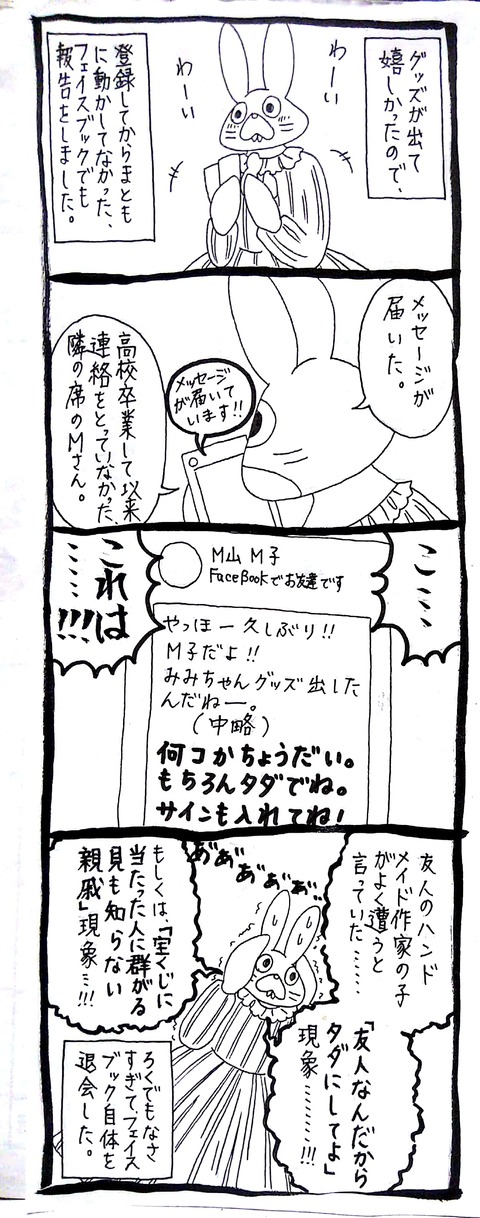 グッズが出て
嬉しかったので、
わーい
わーい
登録してからまとも
に動かしてなかった、
フェイスブックでも
報告をしました。
メッセージが
届いた。
メッセージ
が届いて
います!!
高校卒業して以来
連絡をとっていなかった、
隣の席のMさん。
こ……
M山 M子
FaceBookでお友達です
やっほー久しぶり!!
M子だよ!!
みみちゃんグッズ出した
んだねー。
(中略)
何コかちょうだい。
もちろんタダでね。
サインも入れてね!
これは
……!!!
友人のハンド
メイド作家の子
がよく遭うと
言っていた……
「友人なんだから
タダにしてよ」
現象………!!!
あ゛あ゛
あ゛あ゛あ゛‥
もしくは、「宝くじに
当たった人に群がる
見も知らない
親戚」現象…!!!
ろくでもなさ
すぎて、フェイス
ブック自体を
退会した。